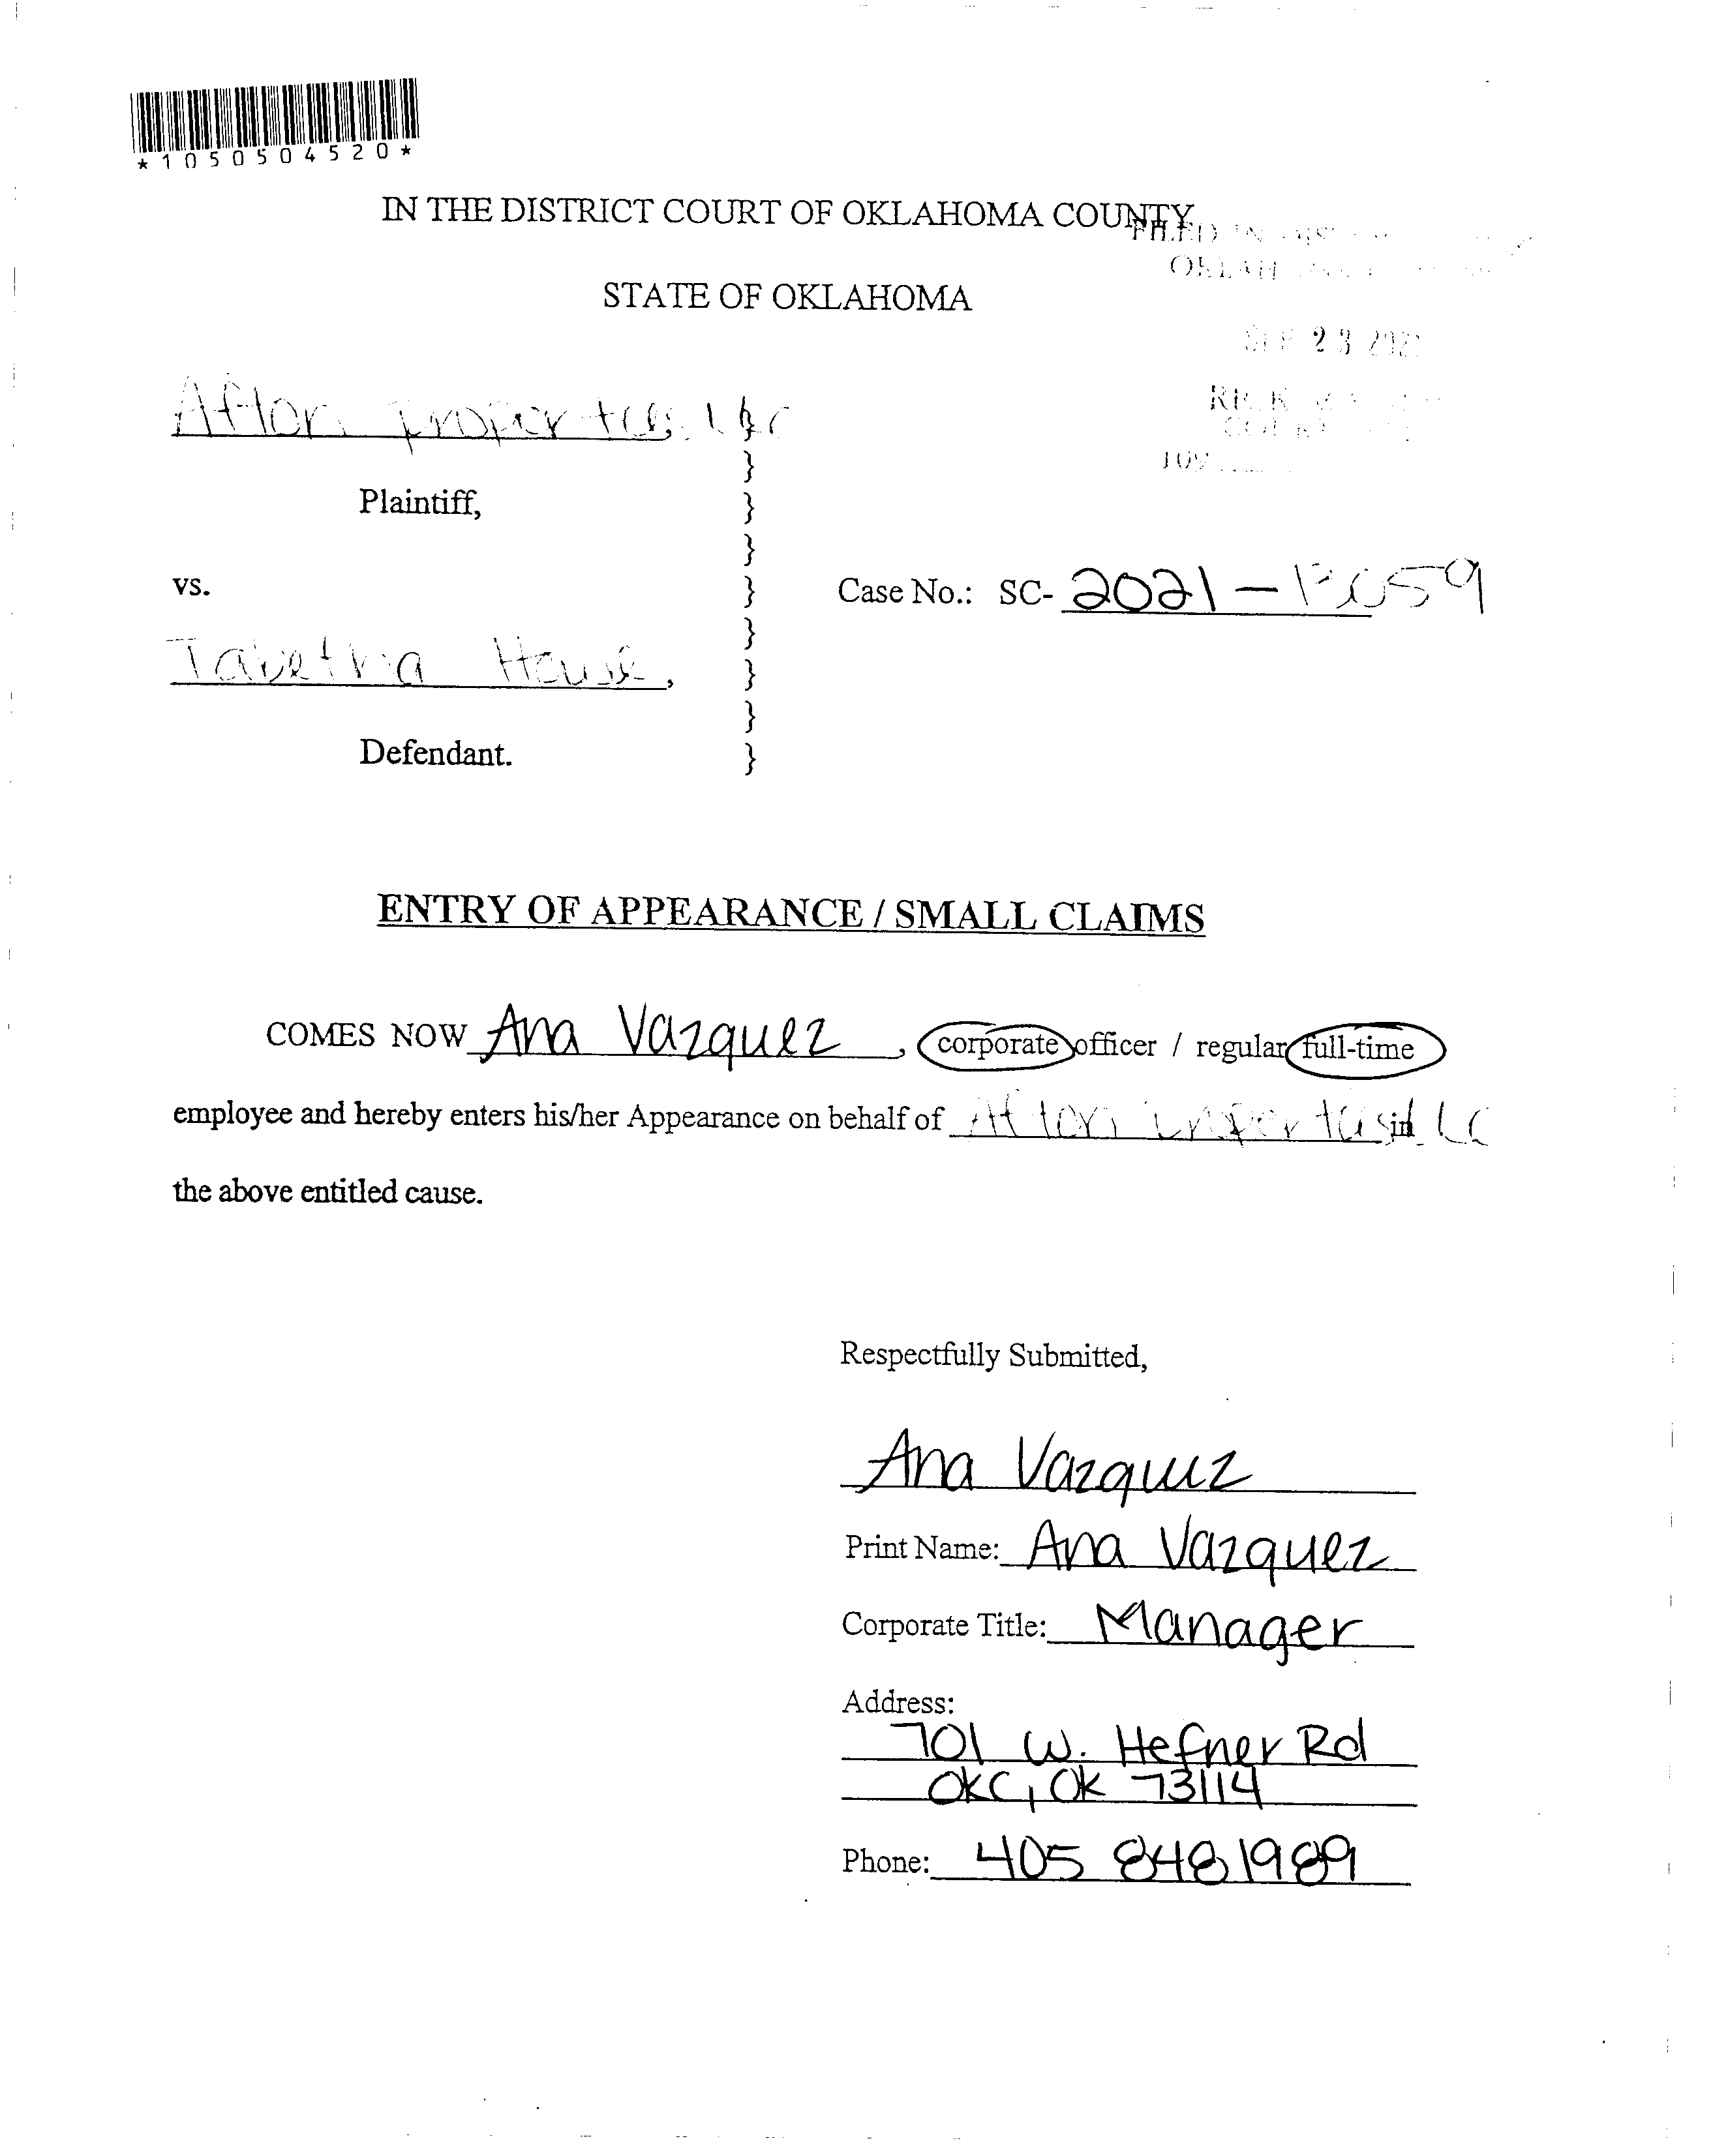 *1050504520*
IN THE DISTRICT COURT OF OKLAHOMA COUNTY
FILED IN
STATE OF OKLAHOMA
SEP 23
Afton properties, LLC }
}
Plaintiff, }
}
vs. }
Case No.: SC- 2021-
}
House, }
}
Defendant. }
ENTRY OF APPEARANCE / SMALL CLAIMS
COMES NOW Ana Vazquez, corporate officer / regular full-time
employee and hereby enters his/her Appearance on behalf of Afton properties LLC in
the above entitled cause.
Respectfully Submitted,
Ana Vazquez
Print Name: Ana Vazquez
Corporate Title: Manager
Address:
701 W. Hefner Rd
OKC, OK 73114
Phone: 405 848 1989